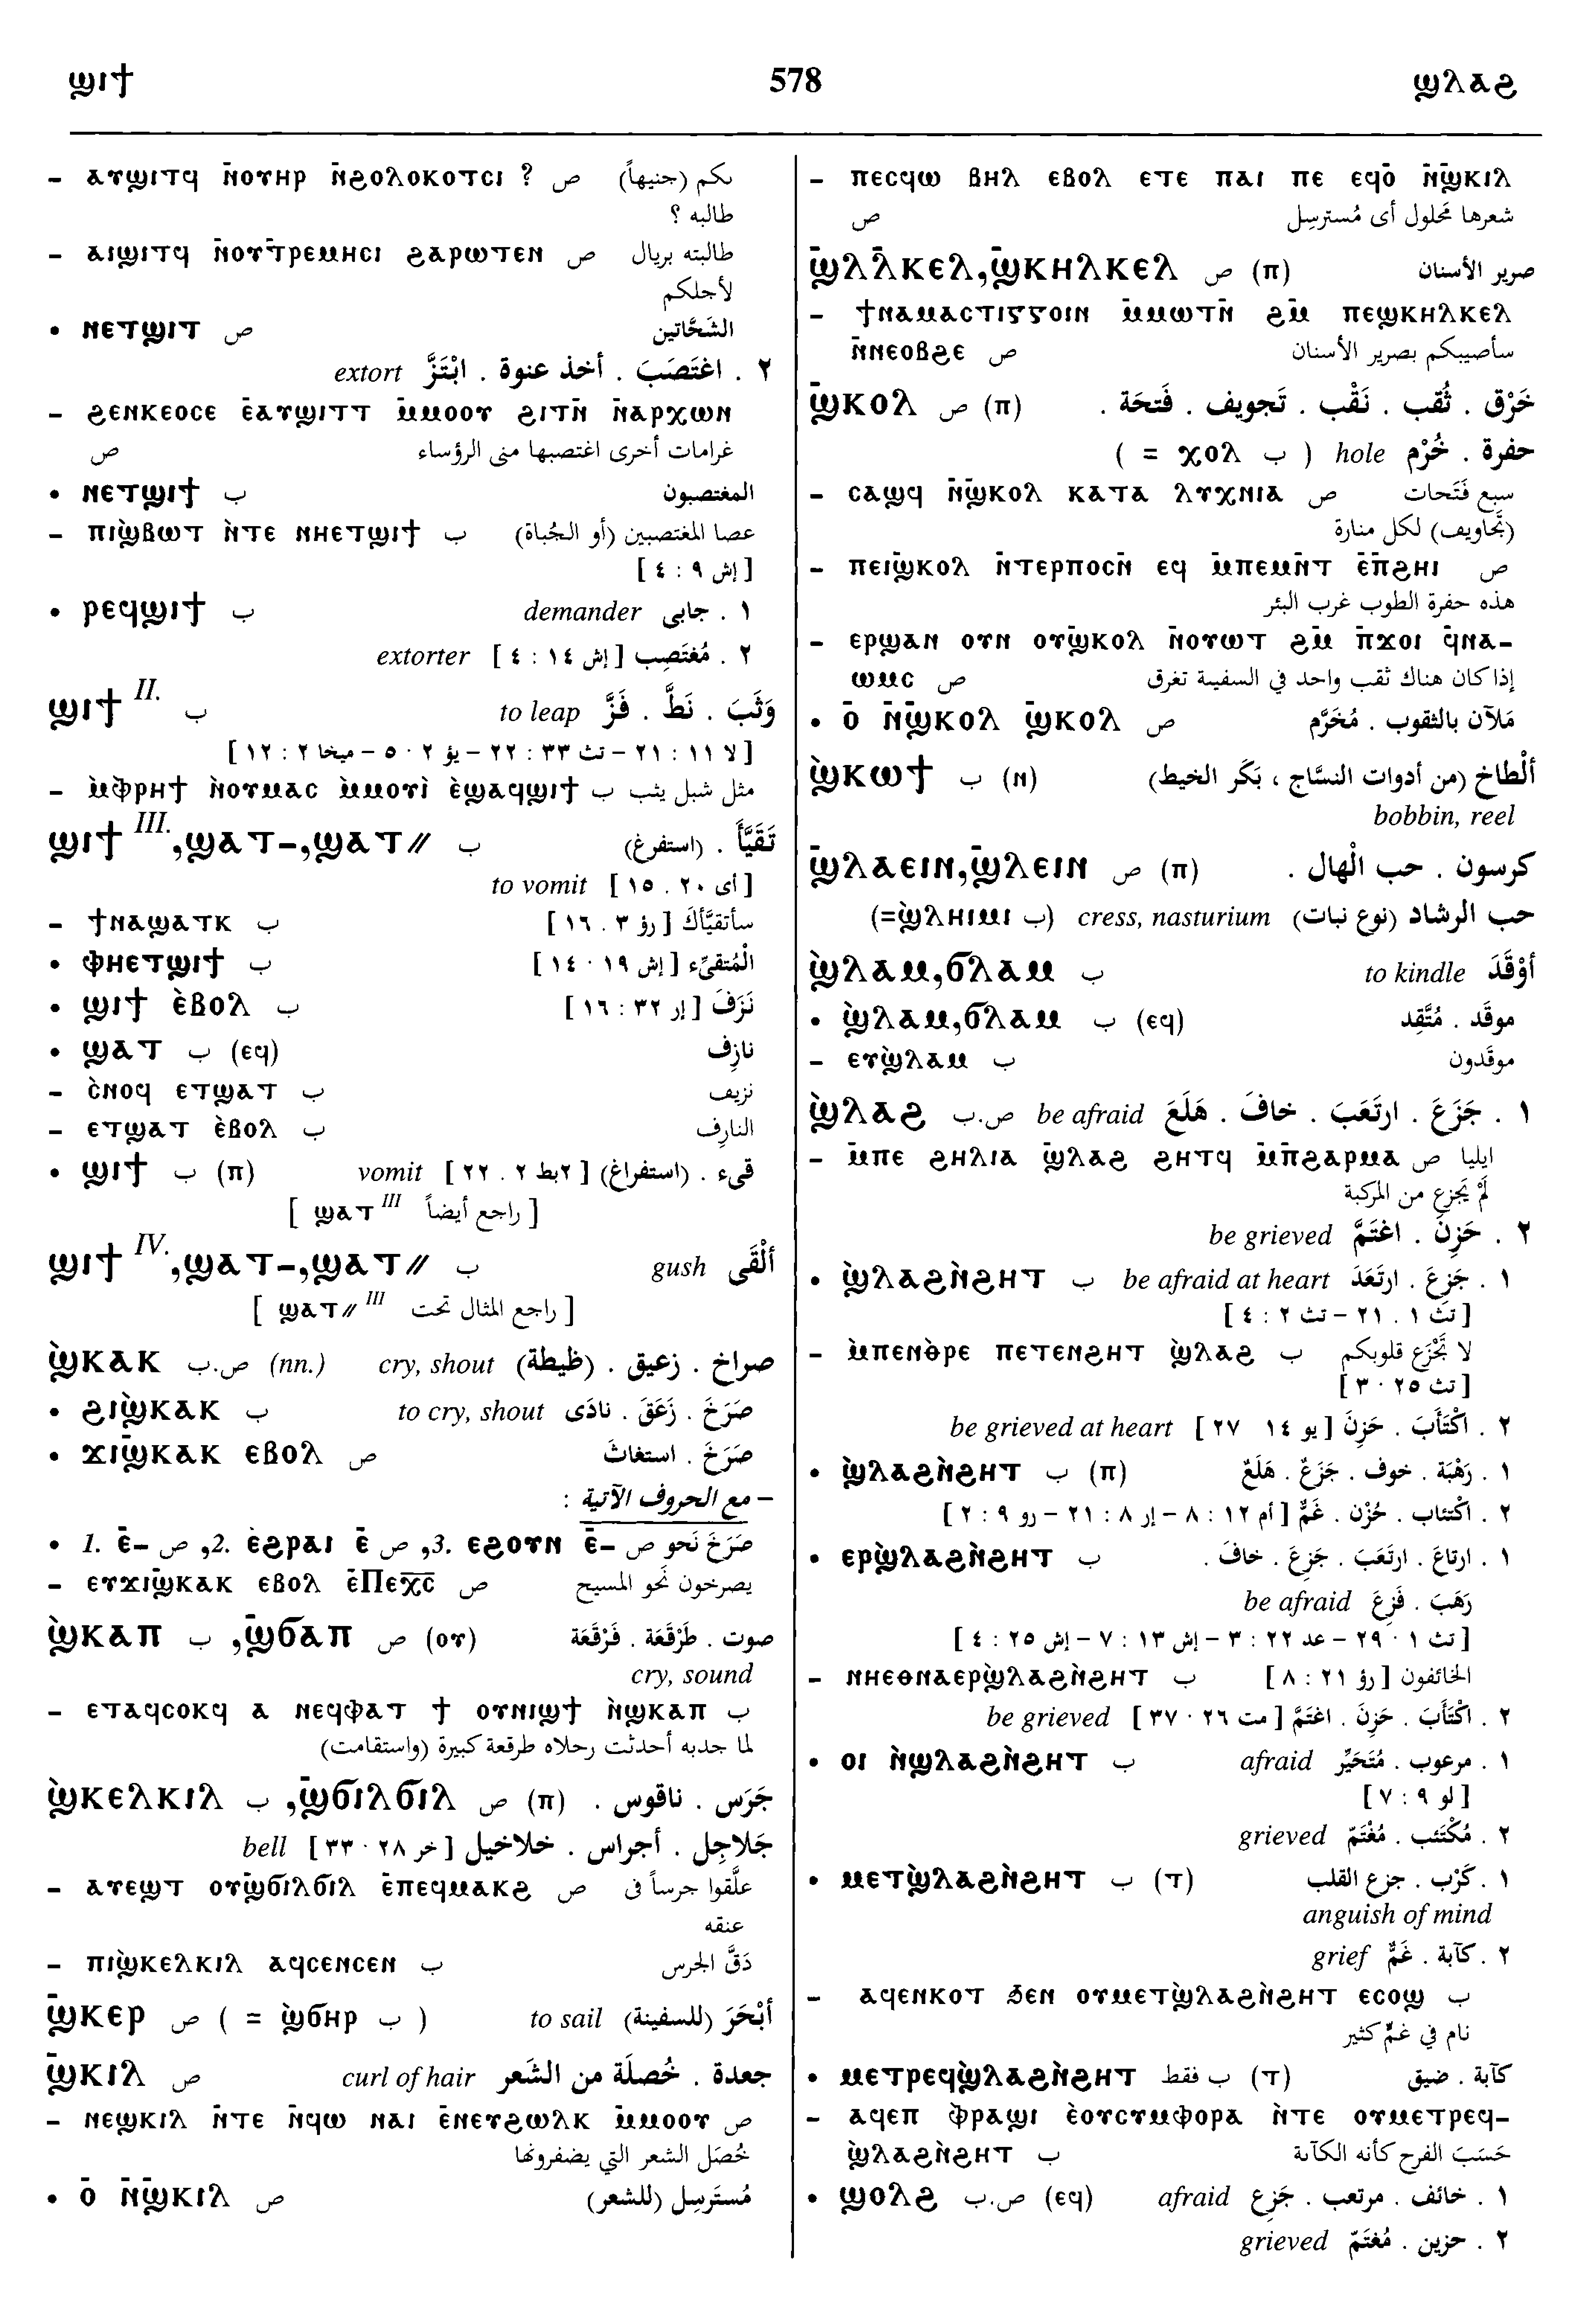 ϣⲓϯ 578 ϣⲗⲁϩ
– ⲁⲩϣⲓⲧϥ ⲛ̄ⲟⲩⲏⲣ ⲛ̄ϩⲟⲗⲟⲕⲟⲧⲥⲓ ? ص بكم (جنيهاً)
طالبه ؟
– ⲁⲓϣⲓⲧϥ ⲛ̄ⲟⲩⲧ̄ⲣⲉⲙⲏⲥⲓ ϩⲁⲣⲱⲧⲉⲛ ص طالبته بريال
لأجلكم
• ⲛⲉⲧϣⲓⲧ ص الشَحَّاتين
٢ . اغتَصَبَ . أخذ عنوة . ابْتَزَّ extort
– ϩⲉⲛⲕⲉⲟⲥⲉ ⲉ̄ⲁⲩϣⲓⲧⲧ ⲙ̄ⲙⲟⲟⲩ ϩⲓⲧⲛ̄ ⲛ̄ⲁⲣⲭⲱⲛ
غرامات أخرى اغتصبها منى الرؤساء ص
• ⲛⲉⲧϣⲓϯ ب المغتصبون
– ⲡⲓϣ̀ⲃⲱⲧ ⲛ̀ⲧⲉ ⲛⲏⲉⲧϣⲓϯ ب عصا المغتصبين (أو الجُباة)
[ إش ٩ : ٤ ]
• ⲣⲉϥϣⲓϯ ب ١ . جابى demander
٢ . مُغتَصِب [ إش ١٤ : ٤ ] extorter
ϣⲓϯ II. ب وَثَبَ . نَطَّ . قَزَّ to leap
[ لا ١١ : ٢١ – تث ٣٣ : ٢٢ – يؤ ٢ ٠ ٥ – ميخا ٢ : ١٢ ]
– ⲙ̀ⲫⲣⲏϯ ⲛ̀ⲟⲩⲙⲁⲥ ⲙ̀ⲙⲟⲩⲓ̀ ⲉ̀ϣⲁϥϣⲓϯ ب مثل شبل يثب
ϣⲓϯ III.,ϣⲁⲧ–,ϣⲁⲧ// ب تَقَيَّأ . (استفرغ)
[ أى ٢٠ . ١٥ ] to vomit
– ϯⲛⲁϣⲁⲧⲕ ب سأتقيَّأكَ [ رؤ ٣ . ١٦ ]
• ⲫⲏⲉⲧϣⲓϯ ب الْمُتقيِّء [ إش ١٩ ٠ ١٤ ]
• ϣⲓϯ ⲉ̀ⲃⲟⲗ ب نَزَفَ [ إر ٣٢ : ١٦ ]
• ϣⲁⲧ ب (ⲉϥ) نازِف
– ⲥ̀ⲛⲟϥ ⲉⲧϣⲁⲧ ب نزيف
– ⲉⲧϣⲁⲧ ⲉ̀ⲃⲟⲗ ب النازِف
• ϣⲓϯ ب (ⲡ) قىء . (استفراغ) [ ٢بط ٢ . ٢٢ ] vomit
[ راجع أيضاً ϣⲁⲧ III ]
ϣⲓϯ IV.,ϣⲁⲧ–,ϣⲁⲧ// ب ألْقَى gush
[ راجع المثال تحت ϣⲁⲧ// III ]
ϣ̀ⲕⲁⲕ ص.ب (nn.) صراخ . زعيق . (ظيطة) cry, shout
• ϩⲓϣ̀ⲕⲁⲕ ب صَرَخَ . زَعَقَ . نادَى to cry, shout
• ϫⲓϣ̄ⲕⲁⲕ ⲉⲃⲟⲗ ص صَرَخَ . استغاثَ
– مع الحروف الآتية :
• 1. ⲉ̄– ص ,2. ⲉ̀ϩⲣⲁⲓ ⲉ̄ ص ,3. ⲉϩⲟⲩⲛ ⲉ̄– صَرَخَ نَحو ص
– ⲉⲩϫⲓϣ̄ⲕⲁⲕ ⲉⲃⲟⲗ ⲉ̄Ⲡⲉⲭ̅ⲥ̅ ص يصرخون نَحو المسيح
ϣ̀ⲕⲁⲡ ب ,ϣ̄ϭⲁⲡ ص (ⲟⲩ) صوت . طَرْقَعَة . فَرْقَعَة
cry, sound
– ⲉⲧⲁϥⲥⲟⲕϥ ⲁ ⲛⲉϥⲫⲁⲧ ϯ ⲟⲩⲛⲓϣϯ ⲛ̀ϣⲕⲁⲡ ب
لما جذبه أحدثت رجلاه طرقعة كبيرة (واستقامت)
ϣ̀ⲕⲉⲗⲕⲓⲗ ب ,ϣ̄ϭⲓⲗϭⲓⲗ ص (ⲡ) جَرَس . ناقوس .
جَلاجِل . أجراس . خلاخيل [ خر ٢٨ ٠ ٣٣ ] bell
– ⲁⲩⲉϣⲧ ⲟⲩϣ̄ϭⲓⲗϭⲓⲗ ⲉ̄ⲡⲉϥⲙⲁⲕϩ ص علَّقوا جرساً فى
عنقه
– ⲡⲓϣ̀ⲕⲉⲗⲕⲓⲗ ⲁϥⲥⲉⲛⲥⲉⲛ ب دَقَّ الجرس
ϣ̄ⲕⲉⲣ ص ( = ϣ̀ϭⲏⲣ ب ) أبْحَرَ (للسفينة) to sail
ϣ̄ⲕⲓⲗ ص جعدة . خُصلَة من الشَعر curl of hair
– ⲛⲉϣⲕⲓⲗ ⲛ̄ⲧⲉ ⲛ̄ϥⲱ ⲛⲁⲓ ⲉ̄ⲛⲉⲩϩⲱⲗⲕ ⲙ̄ⲙⲟⲟⲩ ص
خُصَل الشعر التي يضفرونها
• ⲟ̄ ⲛ̄ϣ̄ⲕⲓⲗ ص مُسترَسِل (للشعر)
– ⲡⲉⲥϥⲱ ⲃⲏⲗ ⲉⲃⲟⲗ ⲉⲧⲉ ⲡⲁⲓ ⲡⲉ ⲉϥⲟ̄ ⲛ̄ϣ̄ⲕⲓⲗ
شعرها مَحلول أى مُسترسِل ص
ϣ̄ⲗⲗ̄ⲕⲉⲗ,ϣ̄ⲕⲏⲗⲕⲉⲗ ص (ⲡ) صرير الأسنان
– ϯⲛⲁⲙⲁⲥⲧⲓⲅⲅⲟⲓⲛ ⲙ̄ⲙⲱⲧⲛ̄ ϩⲙ̄ ⲡⲉϣⲕⲏⲗⲕⲉⲗ
ⲛ̄ⲛⲉⲟⲃϩⲉ ص سأصيبكم بصرير الأسنان
ϣ̄ⲕⲟⲗ ص (ⲡ) خَرْق . ثُقب . نَقْب . تَجويف . فَتحَة .
حفرة . خُرْم hole ( ب ⲭⲟⲗ = )
– ⲥⲁϣϥ ⲛ̄ϣⲕⲟⲗ ⲕⲁⲧⲁ ⲗⲩⲭⲛⲓⲁ ص سبع فَتَحات
(تَجاويف) لكل منارة
– ⲡⲉⲓϣ̄ⲕⲟⲗ ⲛ̄ⲧⲉⲣⲡⲟⲥⲛ̄ ⲉϥ ⲙ̄ⲡⲉⲙⲛ̄ⲧ ⲉ̄ⲡ̄ϩⲏⲓ ص
هذه حفرة الطوب غرب البئر
– ⲉⲣϣⲁⲛ ⲟⲩⲛ ⲟⲩϣ̄ⲕⲟⲗ ⲛ̄ⲟⲩⲱⲧ ϩⲙ̄ ⲡ̄ϫⲟⲓ ϥ̄ⲛⲁ–
ⲱⲙⲥ ص إذا كان هناك ثقب واحد في السفينة تغرق
• ⲟ̄ ⲛ̄ϣⲕⲟⲗ ϣ̄ⲕⲟⲗ ص مَلآن بالثقوب . مُخَرَّم
ϣ̀ⲕⲱϯ ب (ⲛ) ألْطاخ (من أدوات النسَّاج ، بَكَر الخيط)
bobbin, reel
ϣ̄ⲗⲁⲉⲓⲛ,ϣ̄ⲗⲉⲓⲛ ص (ⲡ) كرسون . حب الْهال .
حب الرشاد (نوع نبات) cress, nasturium (ب ϣ̀ⲗⲏⲓⲙⲓ=)
ϣ̀ⲗⲁⲙ,ϭⲗⲁⲙ ب أوْقَدَ to kindle
• ϣ̀ⲗⲁⲙ,ϭⲗⲁⲙ ب (ⲉϥ) موقَد . مُتَّقِد
– ⲉⲩϣ̀ⲗⲁⲙ ب موقَدون
ϣ̀ⲗⲁϩ ص.ب ١ . جَزَعَ . ارتَعَبَ . خافَ . هَلَعَ be afraid
– ⲙ̄ⲡⲉ ϩⲏⲗⲓⲁ ϣ̄ⲗⲁϩ ϩⲏⲧϥ ⲙ̄ⲡ̄ϩⲁⲣⲙⲁ ص ايليا
لَمْ يَجزع من المركبة
٢ . حَزِنَ . اغتَمَّ be grieved
• ϣ̀ⲗⲁϩⲛ̀ϩⲏⲧ ب ١ . جَزِعَ . ارتَعَدَ be afraid at heart
[ تث ١ . ٢١ – تث ٢ : ٤ ]
– ⲙ̀ⲡⲉⲛⲑ̀ⲣⲉ ⲡⲉⲧⲉⲛϩⲏⲧ ϣ̀ⲗⲁϩ ب لا تَجْزَع قلوبكم
[ تث ٢٥ ٠ ٣ ]
٢ . اكْتَأبَ . حَزِنَ [ يو ١٤ ٢٧ ] be grieved at heart
• ϣ̀ⲗⲁϩⲛ̀ϩⲏⲧ ب (ⲡ) ١ . رَهْبَة . خوف . جَزَعٌ . هَلَعٌ
٢ . اكْتئاب . حُزْن . غَمٌّ [ أم ١٢ : ٨ – إر ٨ : ٢١ – رو ٩ : ٢ ]
• ⲉⲣϣ̀ⲗⲁϩⲛ̀ϩⲏⲧ ب ١ . ارتاعَ . ارتَعَبَ . جَزِعَ . خافَ .
رَهَبَ . فَزِعَ be afraid
[ تث ١ ٠ ٢٩ – عد ٢٢ : ٣ – إش ١٣ : ٧ – إش ٢٥ : ٤ ]
– ⲛⲏⲉⲑⲛⲁⲉⲣϣ̀ⲗⲁϩⲛ̀ϩⲏⲧ ب الخائفون [ رؤ ٢١ : ٨ ]
٢ . اكْتَأبَ . حَزِنَ . اغتَمَّ [ مت ٢٦ ٠ ٣٧ ] be grieved
• ⲟⲓ ⲛ̀ϣⲗⲁϩⲛ̀ϩⲏⲧ ب ١ . مرعوب . مُتَحَيِّر afraid
[ لو ٩ : ٧ ]
٢ . مُكْتَئب . مُغْتَمّ grieved
• ⲙⲉⲧϣ̀ⲗⲁϩⲛ̀ϩⲏⲧ ب (ⲧ) ١ . كَرْب . جزع القلب
anguish of mind
٢ . كآبة . غَمٌّ grief
– ⲁϥⲉⲛⲕⲟⲧ ϧⲉⲛ ⲟⲩⲙⲉⲧϣ̀ⲗⲁϩⲛ̀ϩⲏⲧ ⲉⲥⲟϣ ب
نام في غمٍّ كثير
• ⲙⲉⲧⲣⲉϥϣ̀ⲗⲁϩⲛ̀ϩⲏⲧ ب فقط (ⲧ) كآبة . ضيق
– ⲁϥⲉⲡ ⲫ̀ⲣⲁϣⲓ ⲉ̀ⲟⲩⲥⲩⲙⲫⲟⲣⲁ ⲛ̀ⲧⲉ ⲟⲩⲙⲉⲧⲣⲉϥ–
ϣ̀ⲗⲁϩⲛ̀ϩⲏⲧ ب حَسَبَ الفرح كأنه الكآبة
• ϣⲟⲗϩ ص.ب (ⲉϥ) ١ . خائف . مرتعب . جَزِع afraid
٢ . حزين . مُغتَمّ grieved